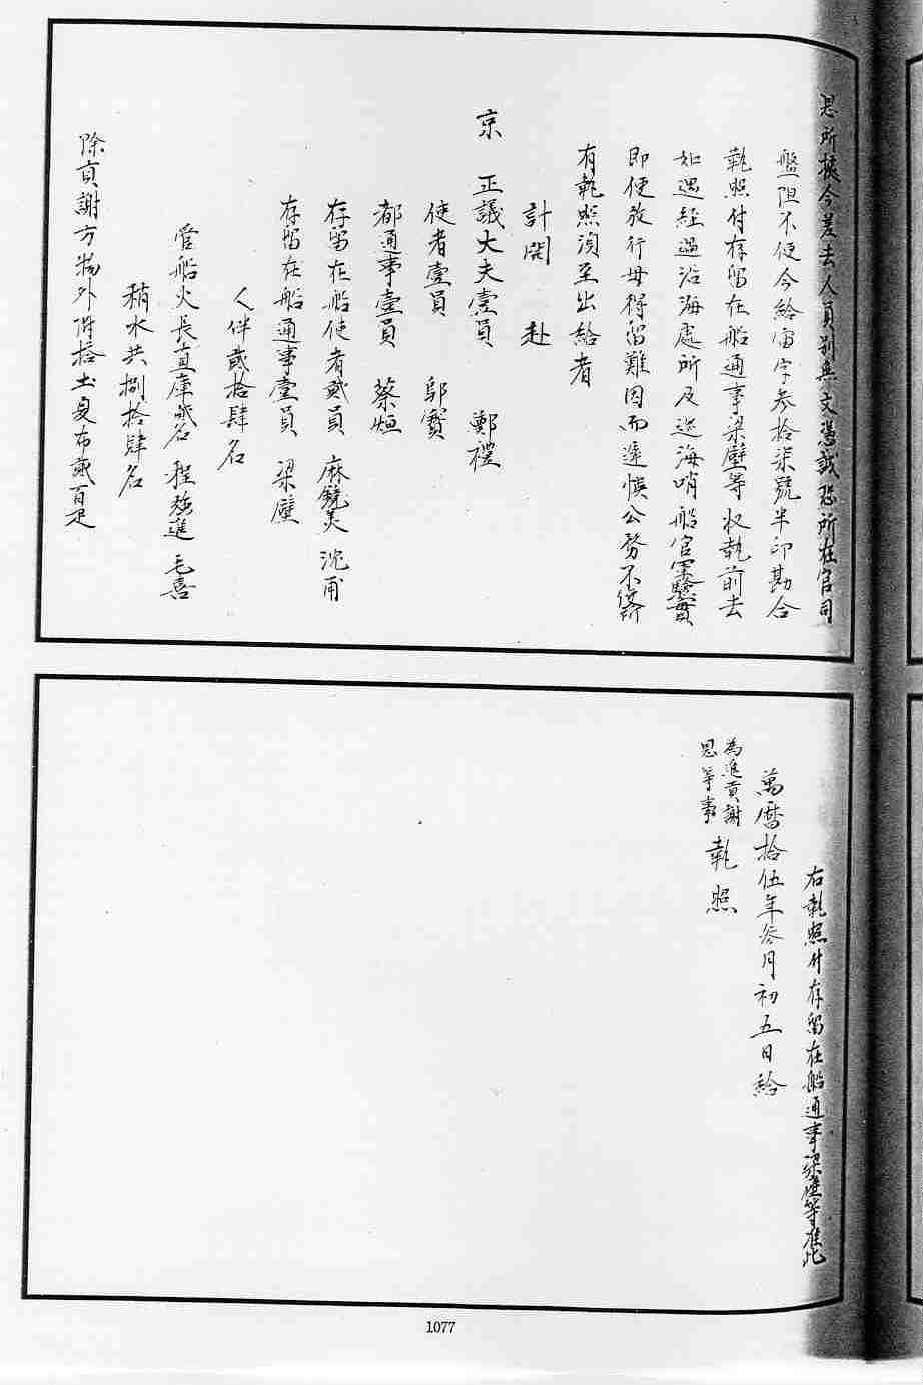 恩所據今差去人員別無文憑誠恐所在官司
盤阻不便今給宙字參拾柒號半印勘合
執照付存留在船通事梁壁等收執前去
如遇經過沿海處所及巡海哨船官軍驗實
即便放行毋得留難因而遲悞公務不便所
有執照須至出給者
計開 赴
京 正議大夫壹員 鄭禮
使者壹員 鄔寶
都通事壹員 蔡烜
存留在船使者貳員 麻 美 沈甫
存留在船通事壹員 梁壁
人伴貳拾肆名
管船火長直庫貳名 程 進 毛喜
稍水共捌拾肆名
除貢謝方物外附搭土夏布貳百疋
右執照付存留在船通事梁壁等准此
萬曆拾伍年叁月初五日給
為進貢謝
恩等事 執照
1077